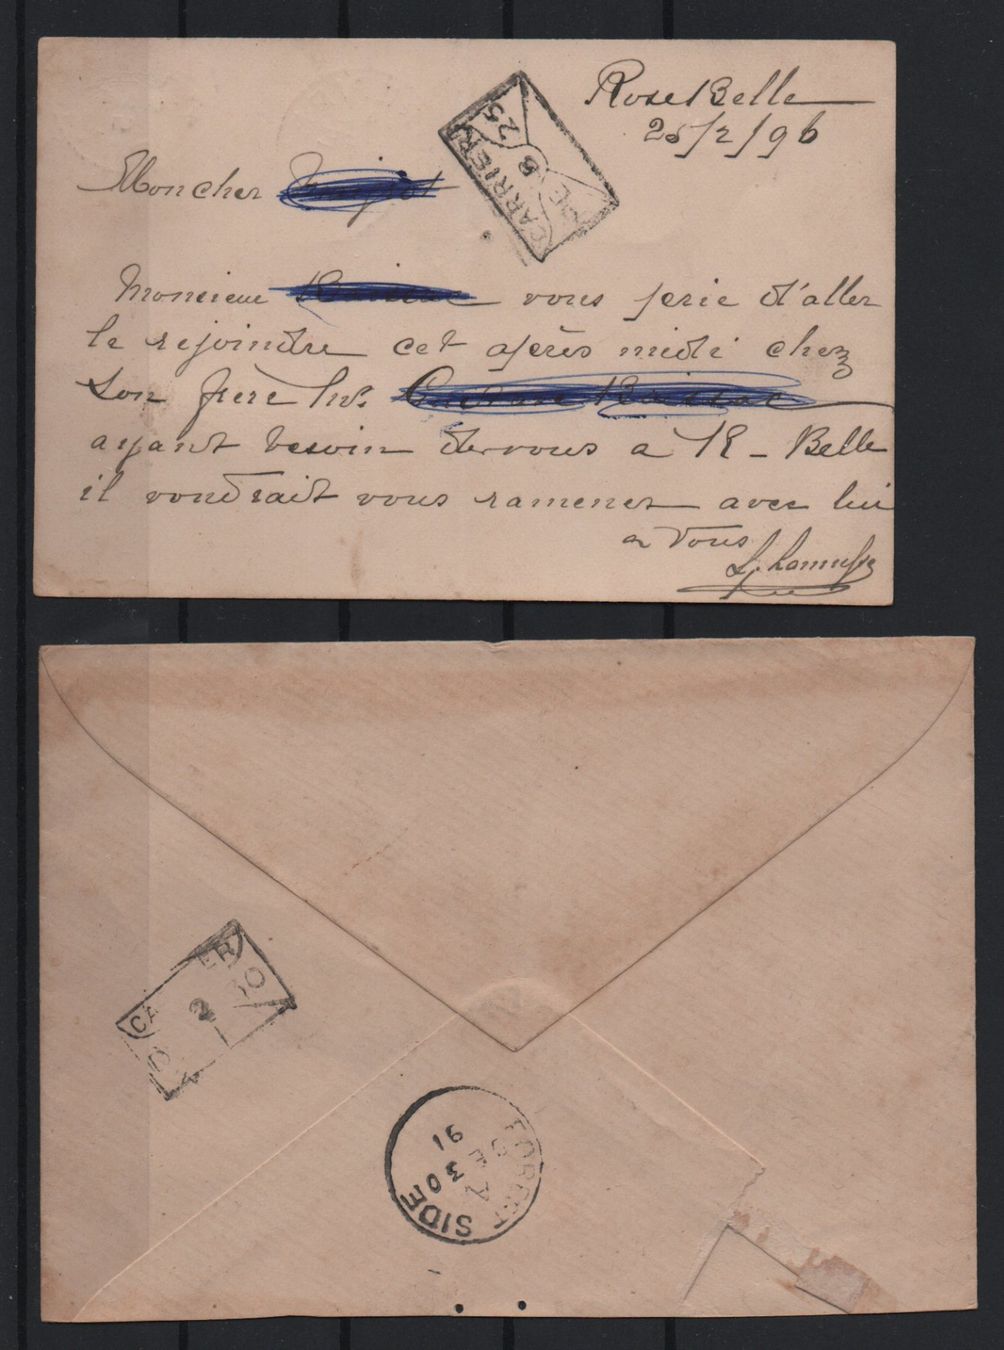 Rose Belle
25/2/96
CARRIER
25
Mon cher
Monsieur vous prie d'aller
le rejoindre cet après midi chez
son frere Mr.
ayant besoin de vous a R - Belle
il voudrait vous ramener avec lui
a vous
CA ER
2 30
FOREST SIDE
A
SE 30
91